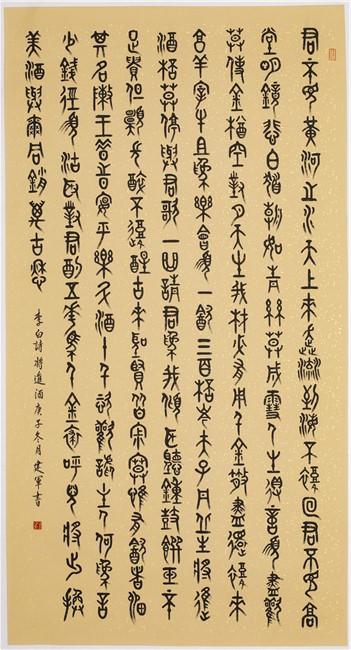 君不見黃河之水天上來奔流到海不復回君不見高
堂明鏡悲白髮朝如青絲暮成雪人生得意須盡歡
莫使金樽空對月天生我材必有用千金散盡還復來
烹羊宰牛且為樂會須一飲三百杯岑夫子丹丘生將進
酒杯莫停與君歌一曲請君為我傾耳聽鐘鼓饌玉不
足貴但願長醉不復醒古來聖賢皆寂寞惟有飲者留
其名陳王昔時宴平樂斗酒十千恣歡謔主人何為言
少錢徑須沽取對君酌五花馬千金裘呼兒將出換
美酒與爾同銷萬古愁
李白詩將進酒庚子冬月建軍書